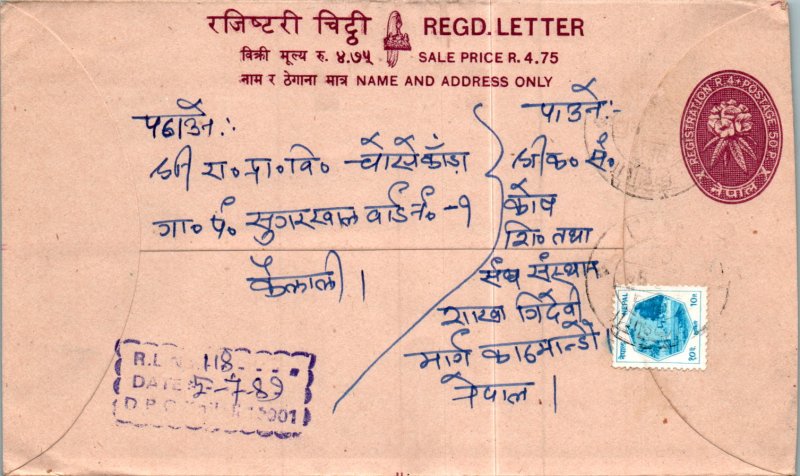 रजिष्टरी चिट्ठी REGD. LETTER
विक्री मूल्य रु. ४.७५ SALE PRICE R. 4.75
नाम र ठेगाना मात्र NAME AND ADDRESS ONLY
REGISTRATION R.4+POSTAGE 50 P.
नेपाल
पठाउने:
श्री रा० प्रा० वि०
गा० पं० सुगरखाल वार्ड नं० -१
कैलाली।
पाउने:-
श्री क० सं०
कोष
शि० तथा
संघ संस्थान
शाखा
मार्ग काठमान्डौ
नेपाल।
NEPAL
10 P.
१० पै.
R.L.N. 118
DATE 5-7-89